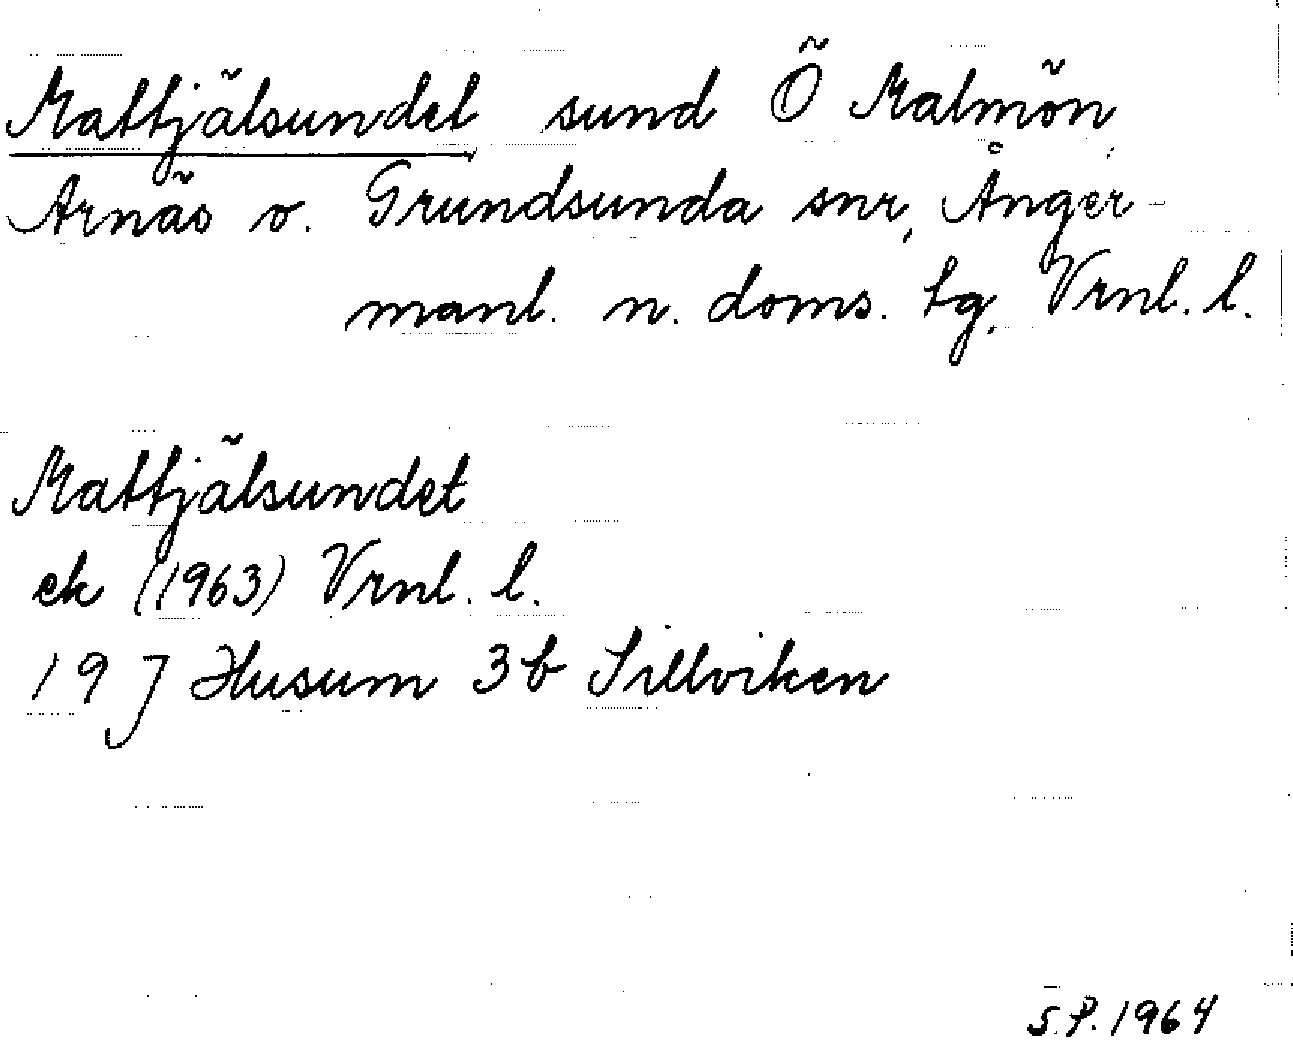 Mattjälsundet sund Ö Malmön,
Arnäs o. Grundsunda snr, Ånger-
manl. n. doms. tg, Vrnl. l.
Mattjälsundet
ek (1963) Vrnl. l.
19 J Husum 3b Sillviken
S.P. 1964